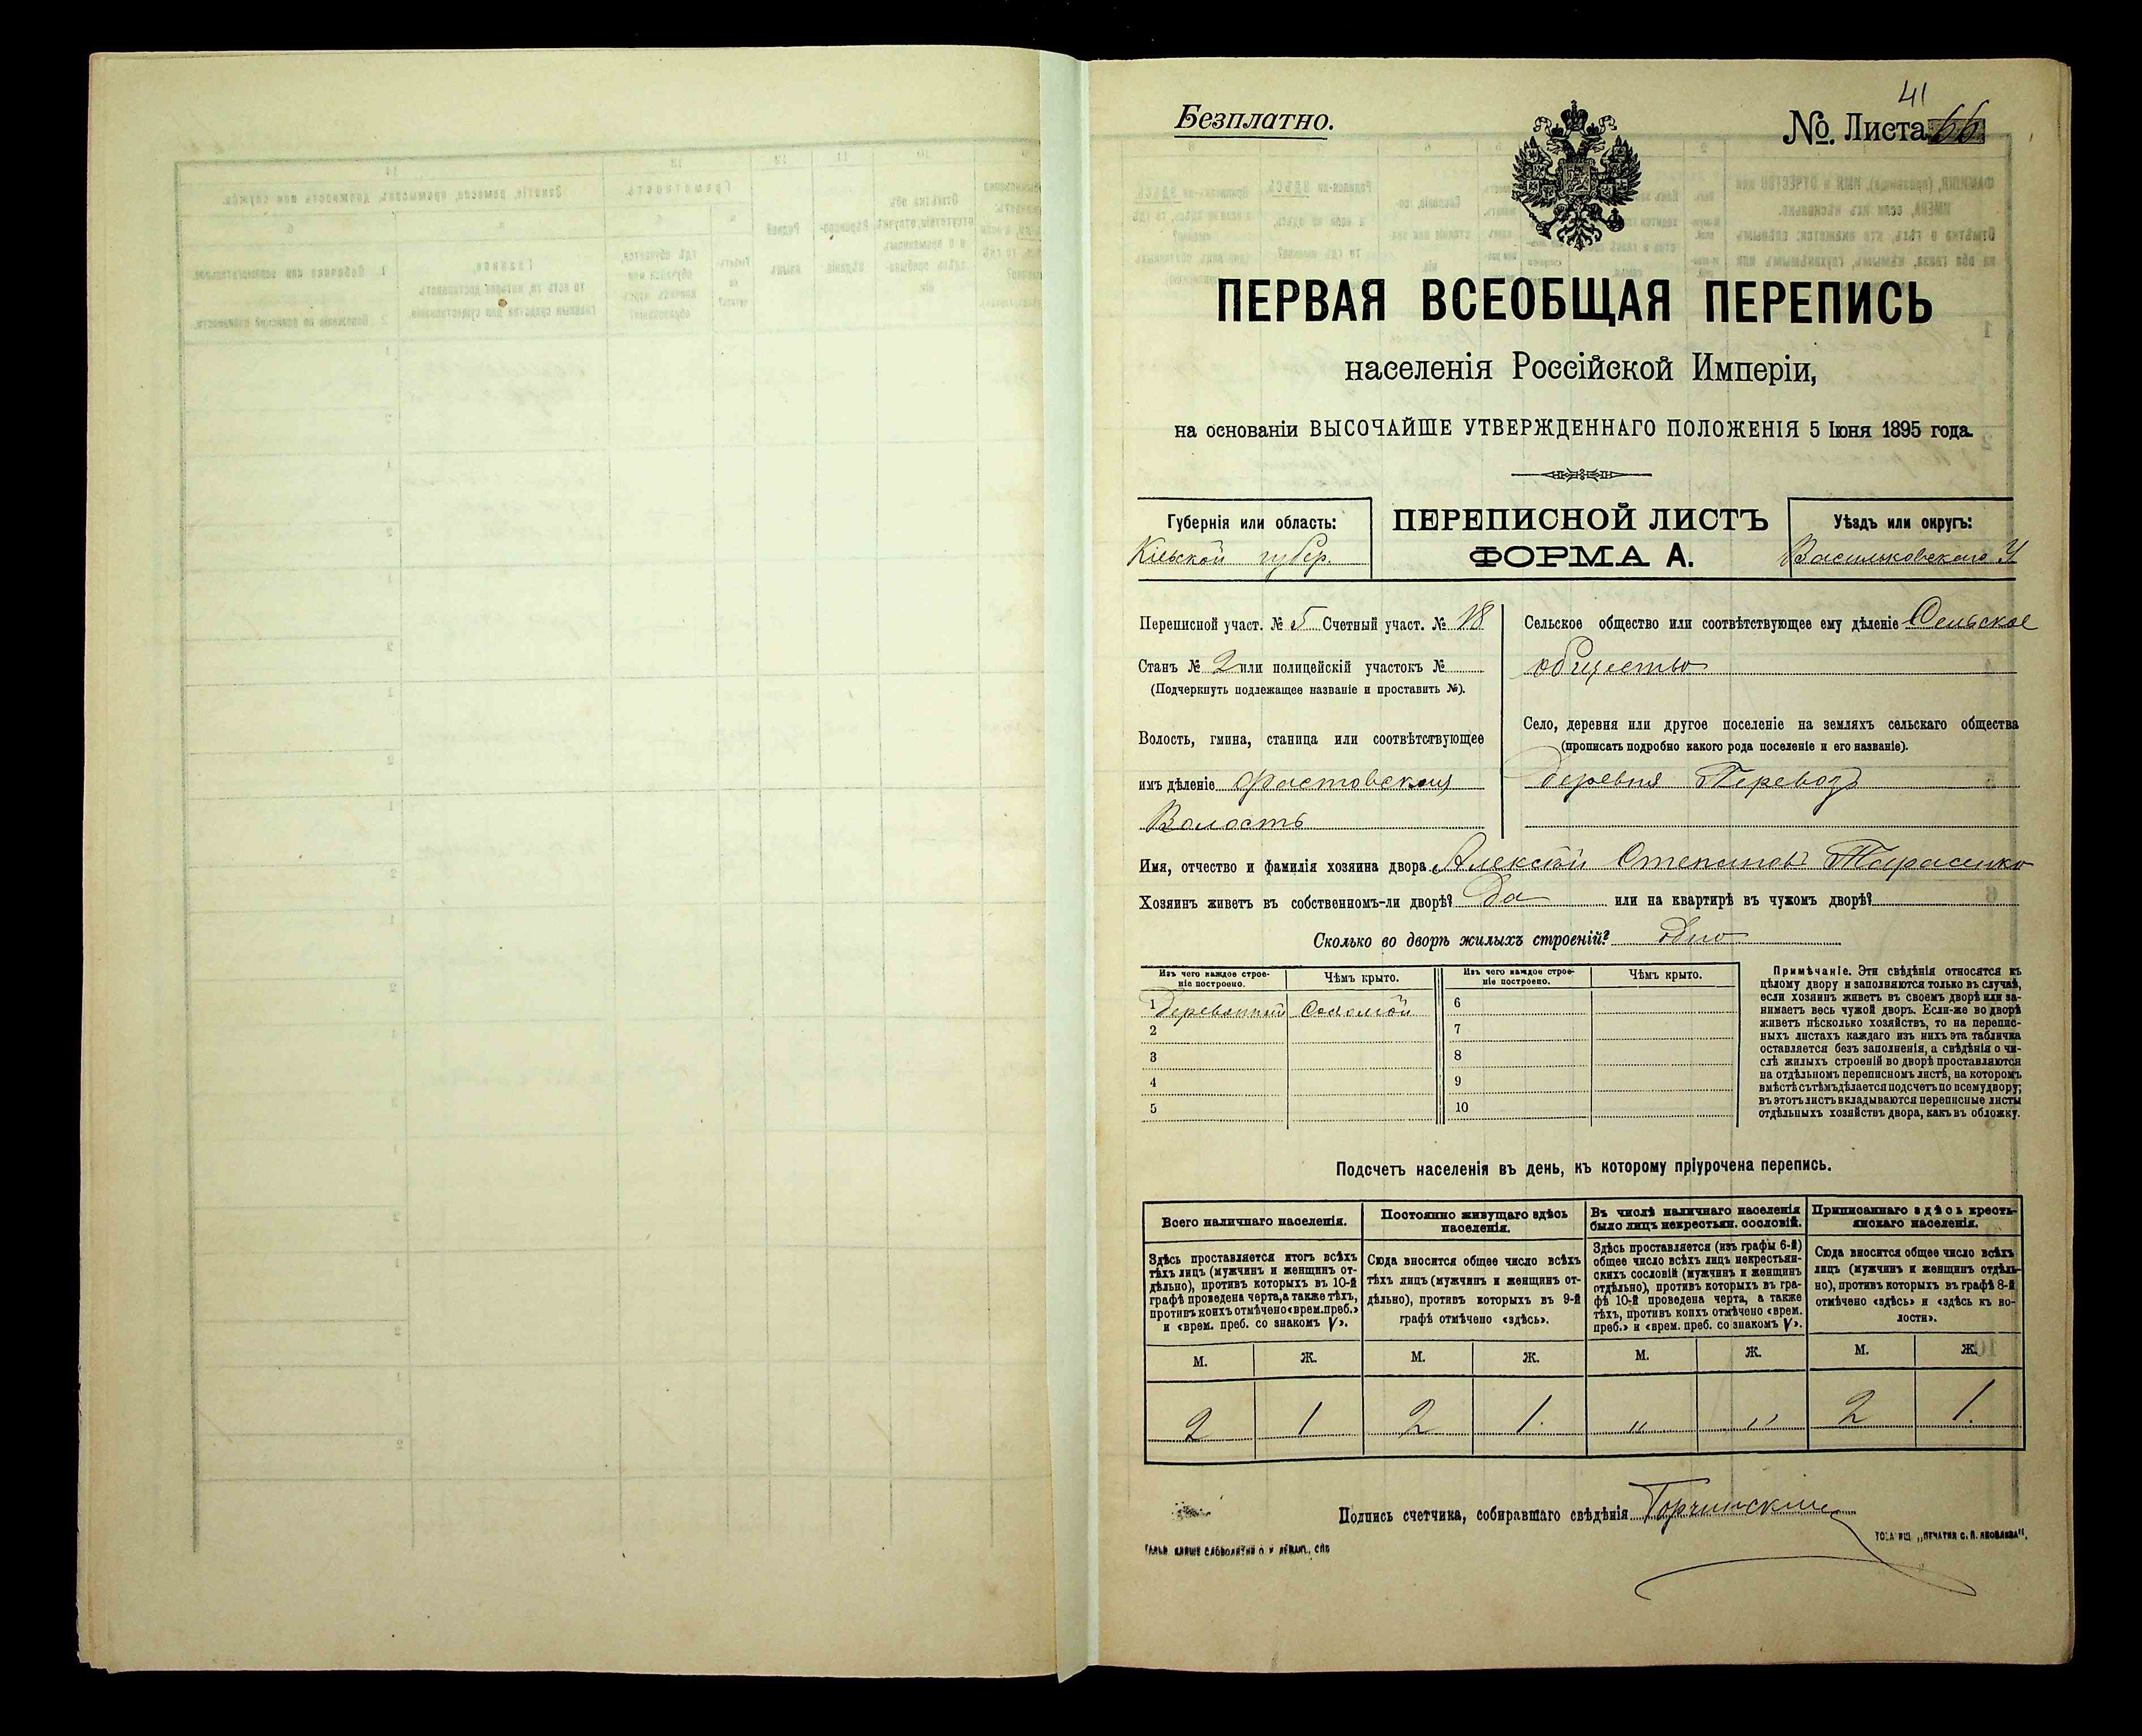 41
Безплатно.
№. Листа 66
ПЕРВАЯ ВСЕОБЩАЯ ПЕРЕПИСЬ
населенія Россійской Имперіи,
на основаніи ВЫСОЧАЙШЕ УТВЕРЖДЕННАГО ПОЛОЖЕНІЯ 5 Іюня 1895 года.
Губернія или область:
Кіевской губер.
ПЕРЕПИСНОЙ ЛИСТЪ
ФОРМА А.
Уѣздъ или округъ:
Васильковскаго У
Переписной участ. № 5 Счетный участ. № 18
Станъ № 2 или полицейскій участокъ №
(Подчеркнуть подлежащее названіе и проставить №).
Волость, гмина, станица или соотвѣтствующее
имъ дѣленіе Фастовская
Волость
Сельское общество или соотвѣтствующее ему дѣленіе Сельское
общество
Село, деревня или другое поселеніе на земляхъ сельскаго общества
(прописать подробно какого рода поселеніе и его названіе).
деревня Переводъ
Имя, отчество и фамилія хозяина двора Алексѣй Степановъ Тарасенко
Хозяинъ живетъ въ собственномъ-ли дворѣ? Да или на квартирѣ въ чужомъ дворѣ?
Сколько во дворѣ жилыхъ строеній? одно
Изъ чего каждое строе-
ніе построено.
Чѣмъ крыто.
1 Деревянный Соломой
2
3
4
5
Изъ чего каждое строе-
ніе построено.
Чѣмъ крыто.
6
7
8
9
10
Примѣчаніе. Эти свѣдѣнія относятся къ
цѣлому двору и заполняются только въ случаѣ,
если хозяинъ живетъ въ своемъ дворѣ или за-
нимаетъ весь чужой дворъ. Если-же во дворѣ
живетъ нѣсколько хозяйствъ, то на перепис-
ныхъ листахъ каждаго изъ нихъ эта табличка
оставляется безъ заполненія, а свѣдѣнія о чи-
слѣ жилыхъ строеній во дворѣ проставляются
на отдѣльномъ переписномъ листѣ, на которомъ
вмѣстѣ съ тѣмъ дѣлается подсчетъ по всему двору;
въ этотъ листъ вкладываются переписные листы
отдѣльныхъ хозяйствъ двора, какъ въ обложку.
Подсчетъ населенія въ день, къ которому пріурочена перепись.
Всего наличнаго населенія.
Здѣсь проставляется итогъ всѣхъ
тѣхъ лицъ (мужчинъ и женщинъ от-
дѣльно), противъ которыхъ въ 10-й
графѣ проведена черта, а также тѣхъ,
противъ коихъ отмѣчено «врем. преб.»
и «врем. преб. со знакомъ V».
Постоянно живущаго здѣсь
населенія.
Сюда вносится общее число всѣхъ
тѣхъ лицъ (мужчинъ и женщинъ от-
дѣльно), противъ которыхъ въ 9-й
графѣ отмѣчено «здѣсь».
Въ числѣ наличнаго населенія
было лицъ некрестьян. сословій.
Здѣсь проставляется (изъ графы 6-й)
общее число всѣхъ лицъ некрестьян-
скихъ сословій (мужчинъ и женщинъ
отдѣльно), противъ которыхъ въ гра-
фѣ 10-й проведена черта, а также
тѣхъ, противъ коихъ отмѣчено «врем.
преб.» и «врем. преб. со знакомъ V».
Приписаннаго здѣсь кресть-
янскаго населенія.
Сюда вносится общее число всѣхъ
лицъ (мужчинъ и женщинъ отдѣль-
но), противъ которыхъ въ графѣ 8-й
отмѣчено «здѣсь» и «здѣсь къ во-
лости».
М. Ж. М. Ж. М. Ж. М. Ж.
2 1 2 1. " " 2 1.
Подпись счетчика, собиравшаго свѣдѣнія Горчинскій